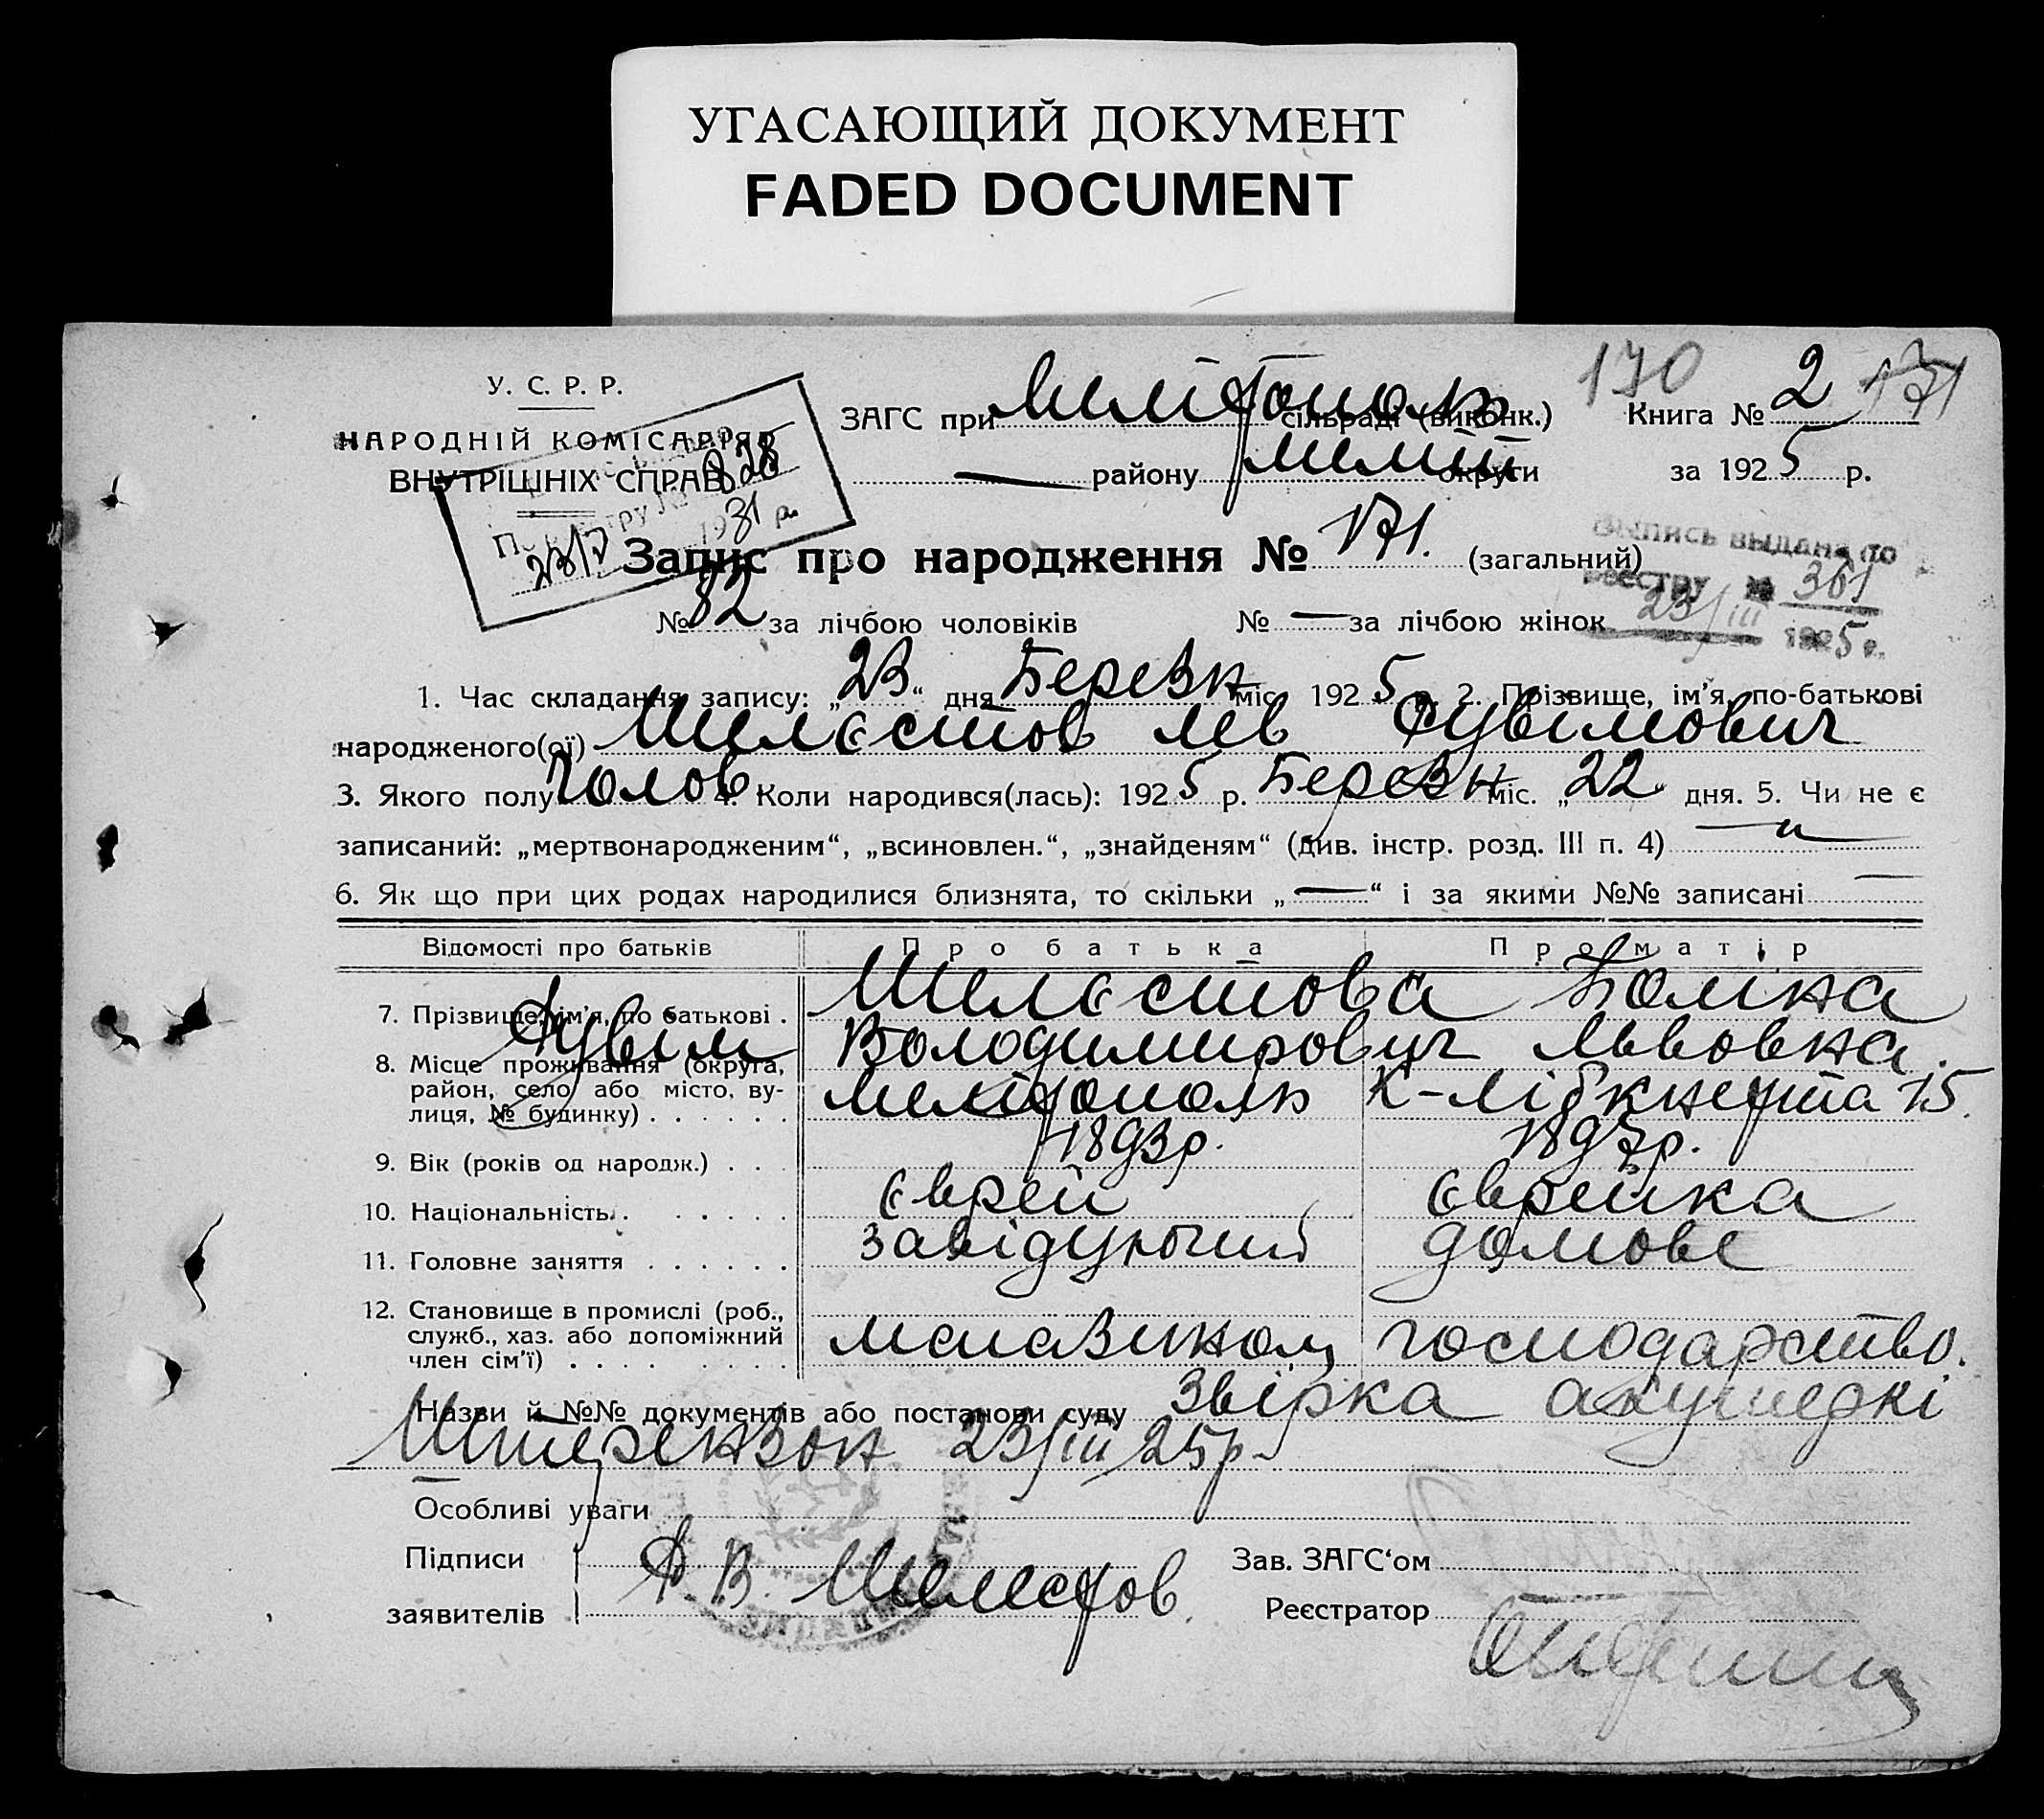 УГАСАЮЩИЙ ДОКУМЕНТ
FADED DOCUMENT
170 171
У. С. Р. Р.
НАРОДНІЙ КОМІСАРІЯТ
ВНУТРІШНІХ СПРАВ
828
1931 р.
ЗАГС при Мелітополь сільраді (виконк.) Книга № 2
— району Меліт округи за 1925 р.
Запис про народження № 171. (загальний)
Выпись выдана по
реестру № 361
23/III 1925 г.
№ 82 за лічбою чоловіків № — за лічбою жінок
1. Час складання запису: „23“ дня Березн міс. 1925 р. 2. Прізвище, ім’я, по-батькові
народженого(ої) Шелєстов Лев Рувімович
3. Якого полу Чолов 4. Коли народився(лась): 1925 р. Березн міс. „22“ дня. 5. Чи не є
записаний: „мертвонародженим“, „всиновлен.“, „знайденям“ (див. інстр. розд. III п. 4) —„—
6. Як що при цих родах народилися близнята, то скільки „—“ і за якими №№ записані —
Відомості про батьків Про батька Про матір
7. Прізвище, ім’я, по батькові . Шелєстова
Рувім Володимирович Львовна.
8. Місце проживання (округа,
район, село або місто, ву-
лиця, № будинку) . . . . . . Мелітополь К-Лібкнехта 15.
9. Вік (років од народж.) . . . 1893р. 1897р.
10. Національність . . . . . . . Єврей Єврейка
11. Головне заняття . . . . . . Завідуючий домове
12. Становище в промислі (роб.,
служб., хаз. або допоміжний
член сім’ї) . . . . . . . . . . магазином господарство.
Назви й №№ документів або постанови суду Звірка акушеркі
Штерензон 23/III 25р.
Особливі уваги
Підписи Зав. ЗАГС‘ом
заявителів Р. В. Шелестов. Реєстратор